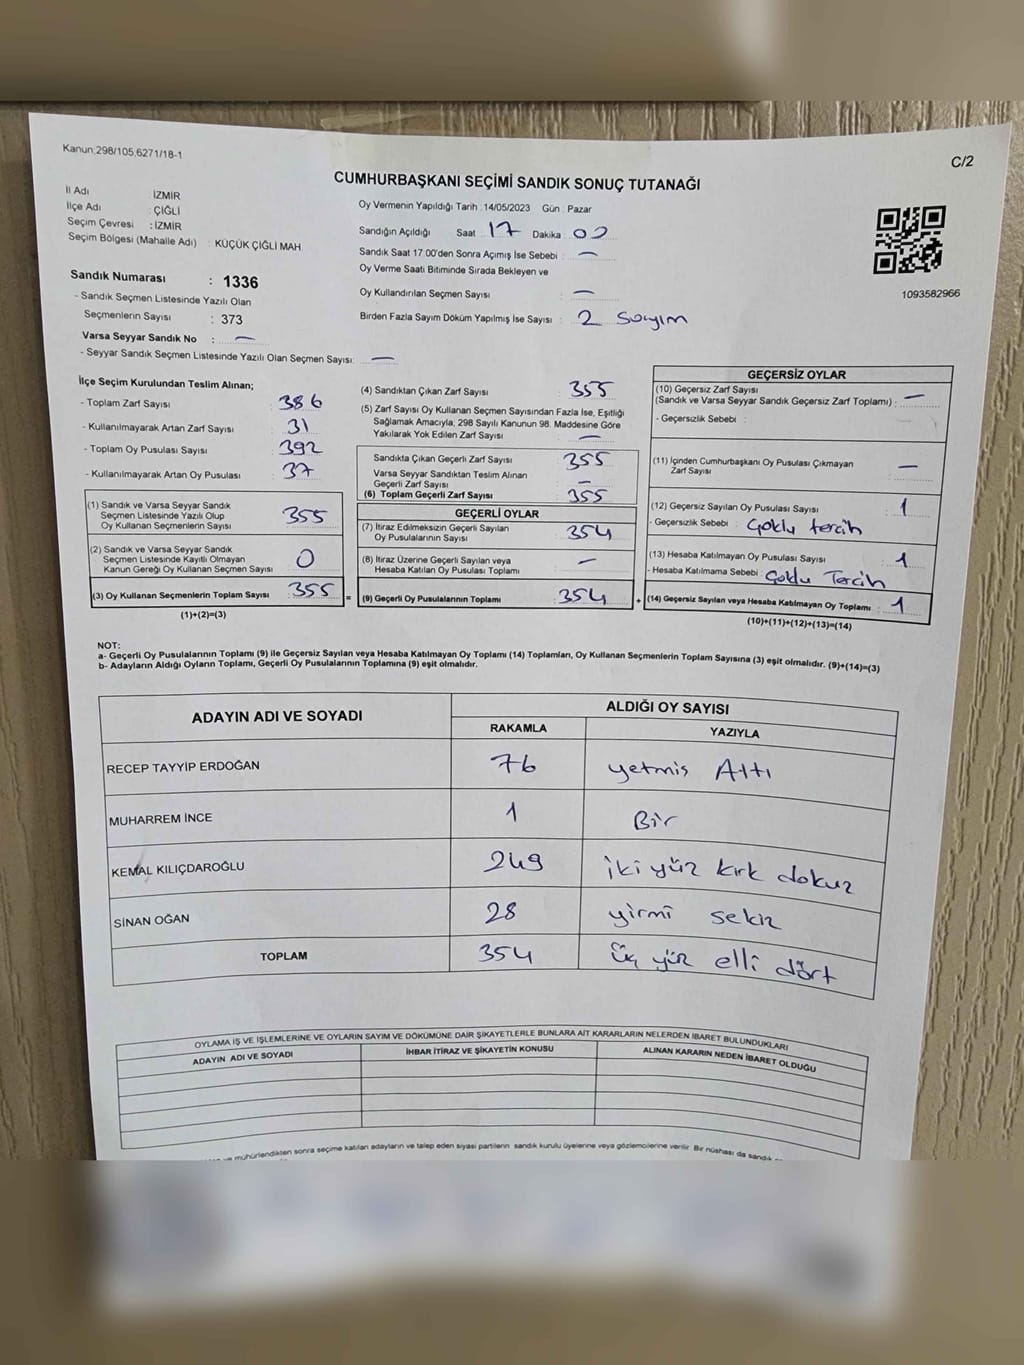 Kanun:298/105,6271/18-1
C/2
CUMHURBAŞKANI SEÇİMİ SANDIK SONUÇ TUTANAĞI
İl Adı : İZMİR
İlçe Adı : ÇİĞLİ
Seçim Çevresi : İZMİR
Seçim Bölgesi (Mahalle Adı) : KÜÇÜK ÇİĞLİ MAH.
Sandık Numarası : 1336
- Sandık Seçmen Listesinde Yazılı Olan
Seçmenlerin Sayısı : 373
Varsa Seyyar Sandık No : —
- Seyyar Sandık Seçmen Listesinde Yazılı Olan Seçmen Sayısı: —
Oy Vermenin Yapıldığı Tarih :14/05/2023 Gün : Pazar
Sandığın Açıldığı Saat 17 Dakika 00
Sandık Saat 17:00'den Sonra Açımış İse Sebebi : —
Oy Verme Saati Bitiminde Sırada Bekleyen ve
Oy Kullandırılan Seçmen Sayısı : —
Birden Fazla Sayım Döküm Yapılmış İse Sayısı : 2 Sayım
1093582966
İlçe Seçim Kurulundan Teslim Alınan;
- Toplam Zarf Sayısı : 386
- Kullanılmayarak Artan Zarf Sayısı : 31
- Toplam Oy Pusulası Sayısı : 392
- Kullanılmayarak Artan Oy Pusulası : 37
(1) Sandık ve Varsa Seyyar Sandık
Seçmen Listesinde Yazılı Olup
Oy Kullanan Seçmenlerin Sayısı : 355
(2) Sandık ve Varsa Seyyar Sandık
Seçmen Listesinde Kayıtlı Olmayan
Kanun Gereği Oy Kullanan Seçmen Sayısı : 0
(3) Oy Kullanan Seçmenlerin Toplam Sayısı : 355 =
(1)+(2)=(3)
(4) Sandıktan Çıkan Zarf Sayısı : 355
(5) Zarf Sayısı Oy Kullanan Seçmen Sayısından Fazla İse, Eşitliği
Sağlamak Amacıyla, 298 Sayılı Kanunun 98. Maddesine Göre
Yakılarak Yok Edilen Zarf Sayısı : —
Sandıkta Çıkan Geçerli Zarf Sayısı : 355
Varsa Seyyar Sandıktan Teslim Alınan
Geçerli Zarf Sayısı : —
(6) Toplam Geçerli Zarf Sayısı : 355
GEÇERLİ OYLAR
(7) İtiraz Edilmeksizin Geçerli Sayılan
Oy Pusulalarının Sayısı : 354
(8) İtiraz Üzerine Geçerli Sayılan veya
Hesaba Katılan Oy Pusulası Toplamı : —
(9) Geçerli Oy Pusulalarının Toplamı : 354 +
GEÇERSİZ OYLAR
(10) Geçersiz Zarf Sayısı
(Sandık ve Varsa Seyyar Sandık Geçersiz Zarf Toplamı) : —
- Geçersizlik Sebebi :
(11) İçinden Cumhurbaşkanı Oy Pusulası Çıkmayan
Zarf Sayısı : —
(12) Geçersiz Sayılan Oy Pusulası Sayısı : 1
- Geçersizlik Sebebi : Çoklu tercih
(13) Hesaba Katılmayan Oy Pusulası Sayısı : 1
- Hesaba Katılmama Sebebi : Çoklu Tercih
(14) Geçersiz Sayılan veya Hesaba Katılmayan Oy Toplamı : 1
(10)+(11)+(12)+(13)=(14)
NOT:
a- Geçerli Oy Pusulalarının Toplamı (9) ile Geçersiz Sayılan veya Hesaba Katılmayan Oy Toplamı (14) Toplamları, Oy Kullanan Seçmenlerin Toplam Sayısına (3) eşit olmalıdır. (9)+(14)=(3)
b- Adayların Aldığı Oyların Toplamı, Geçerli Oy Pusulalarının Toplamına (9) eşit olmalıdır.
ADAYIN ADI VE SOYADI ALDIĞI OY SAYISI
RAKAMLA YAZIYLA
RECEP TAYYİP ERDOĞAN 76 yetmis Altı
MUHARREM İNCE 1 Bir
KEMAL KILIÇDAROĞLU 249 iki yüz kırk dokuz
SİNAN OĞAN 28 yirmi sekiz
TOPLAM 354 üç yüz elli dört
OYLAMA İŞ VE İŞLEMLERİNE VE OYLARIN SAYIM VE DÖKÜMÜNE DAİR ŞİKAYETLERLE BUNLARA AİT KARARLARIN NELERDEN İBARET BULUNDUKLARI
ADAYIN ADI VE SOYADI İHBAR İTİRAZ VE ŞİKAYETİN KONUSU ALINAN KARARIN NEDEN İBARET OLDUĞU
ve mühürlendikten sonra seçime katılan adayların ve talep eden siyasi partilerin sandık kurulu üyelerine veya gözlemcilerine verilir. Bir nüshası da sandık